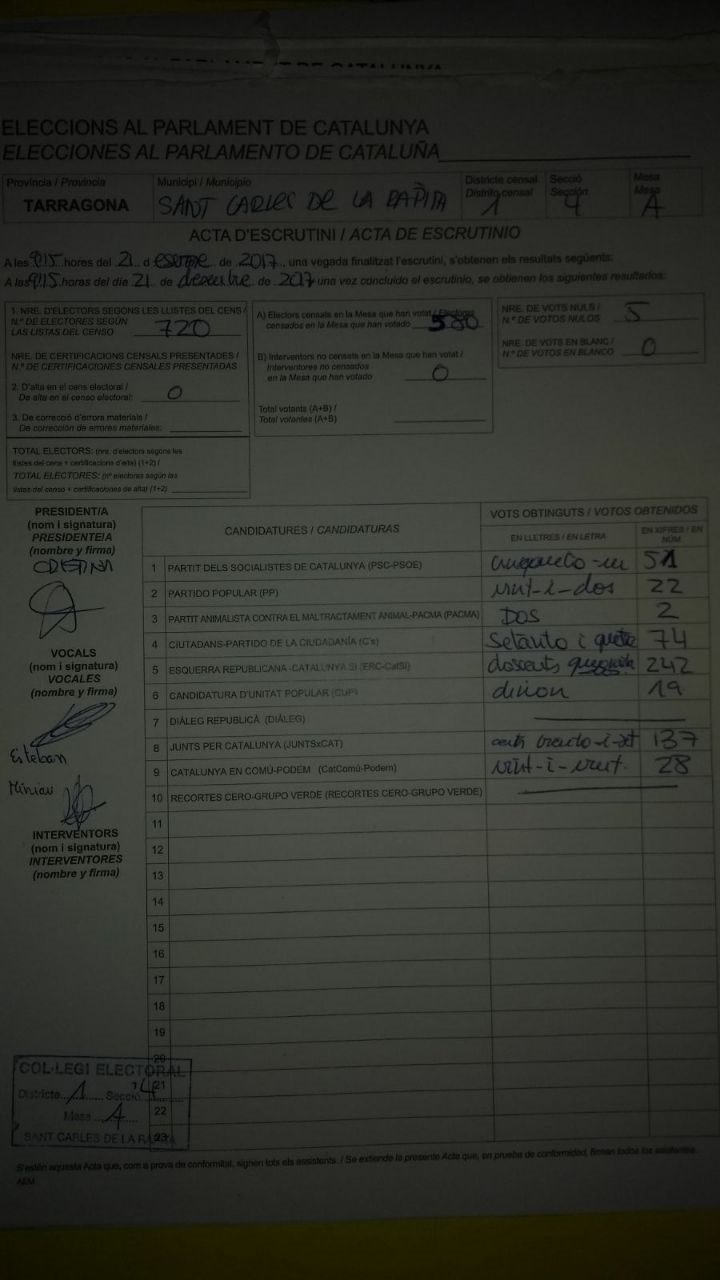 ELECCIONS AL PARLAMENT DE CATALUNYA
ELECCIONES AL PARLAMENTO DE CATALUÑA
Província / Provincia Municipi / Municipio Districte censal Secció Mesa
Distrito censal Sección Mesa
TARRAGONA SANT CARLES DE LA RÀPITA 1 4 A
ACTA D'ESCRUTINI / ACTA DE ESCRUTINIO
A les hores del 21 d de 2017, una vegada finalitzat l'escrutini, s'obtenen els resultats següents:
A las hores del día 21 de de 2017 una vez concluido el escrutinio, se obtienen los siguientes resultados:
1. NRE. D'ELECTORS SEGONS LES LLISTES DEL CENS /
N.º DE ELECTORES SEGÚN
LAS LISTAS DEL CENSO 720
NRE. DE CERTIFICACIONS CENSALS PRESENTADES /
N.º DE CERTIFICACIONES CENSALES PRESENTADAS
2. D'alta en el cens electoral /
De alta en el censo electoral: 0
3. De correcció d'errors materials /
De corrección de errores materiales:
TOTAL ELECTORS: (nre. d'electors segons les
llistes del cens + certificacions d'alta) (1+2) /
TOTAL ELECTORES: (nº electores según las
listas del censo + certificaciones de alta) (1+2)
A) Electors censats en la Mesa que han votat / Electores
censados en la Mesa que han votado 580
B) Interventors no censats en la Mesa que han votat /
Interventores no censados
en la Mesa que han votado 0
Total votants (A+B) /
Total votantes (A+B)
NRE. DE VOTS NULS /
N.º DE VOTOS NULOS 5
NRE. DE VOTS EN BLANC /
N.º DE VOTOS EN BLANCO 0
PRESIDENT/A
(nom i signatura)
PRESIDENTE/A
(nombre y firma)
VOCALS
(nom i signatura)
VOCALES
(nombre y firma)
Esteban
INTERVENTORS
(nom i signatura)
INTERVENTORES
(nombre y firma)
CANDIDATURES / CANDIDATURAS VOTS OBTINGUTS / VOTOS OBTENIDOS
EN LLETRES / EN LETRA EN XIFRES / EN NÚM.
1 PARTIT DELS SOCIALISTES DE CATALUNYA (PSC-PSOE) 51
2 PARTIDO POPULAR (PP) vint-i-dos 22
3 PARTIT ANIMALISTA CONTRA EL MALTRACTAMENT ANIMAL-PACMA (PACMA) DOS 2
4 CIUTADANS-PARTIDO DE LA CIUDADANÍA (C's) 74
5 ESQUERRA REPUBLICANA-CATALUNYA SÍ (ERC-CatSí) 242
6 CANDIDATURA D'UNITAT POPULAR (CUP) 19
7 DIÀLEG REPUBLICÀ (DIÀLEG)
8 JUNTS PER CATALUNYA (JUNTSxCAT) 137
9 CATALUNYA EN COMÚ-PODEM (CatComú-Podem) 28
10 RECORTES CERO-GRUPO VERDE (RECORTES CERO-GRUPO VERDE)
11
12
13
14
15
16
17
18
19
20
21
22
23
COL·LEGI ELECTORAL
Districte 1 Secció 4
Mesa A
SANT CARLES DE LA RÀPITA
S'estén aquesta Acta que, com a prova de conformitat, signen tots els assistents. / Se extiende la presente Acta que, en prueba de conformidad, firman todos los asistentes.
AEM